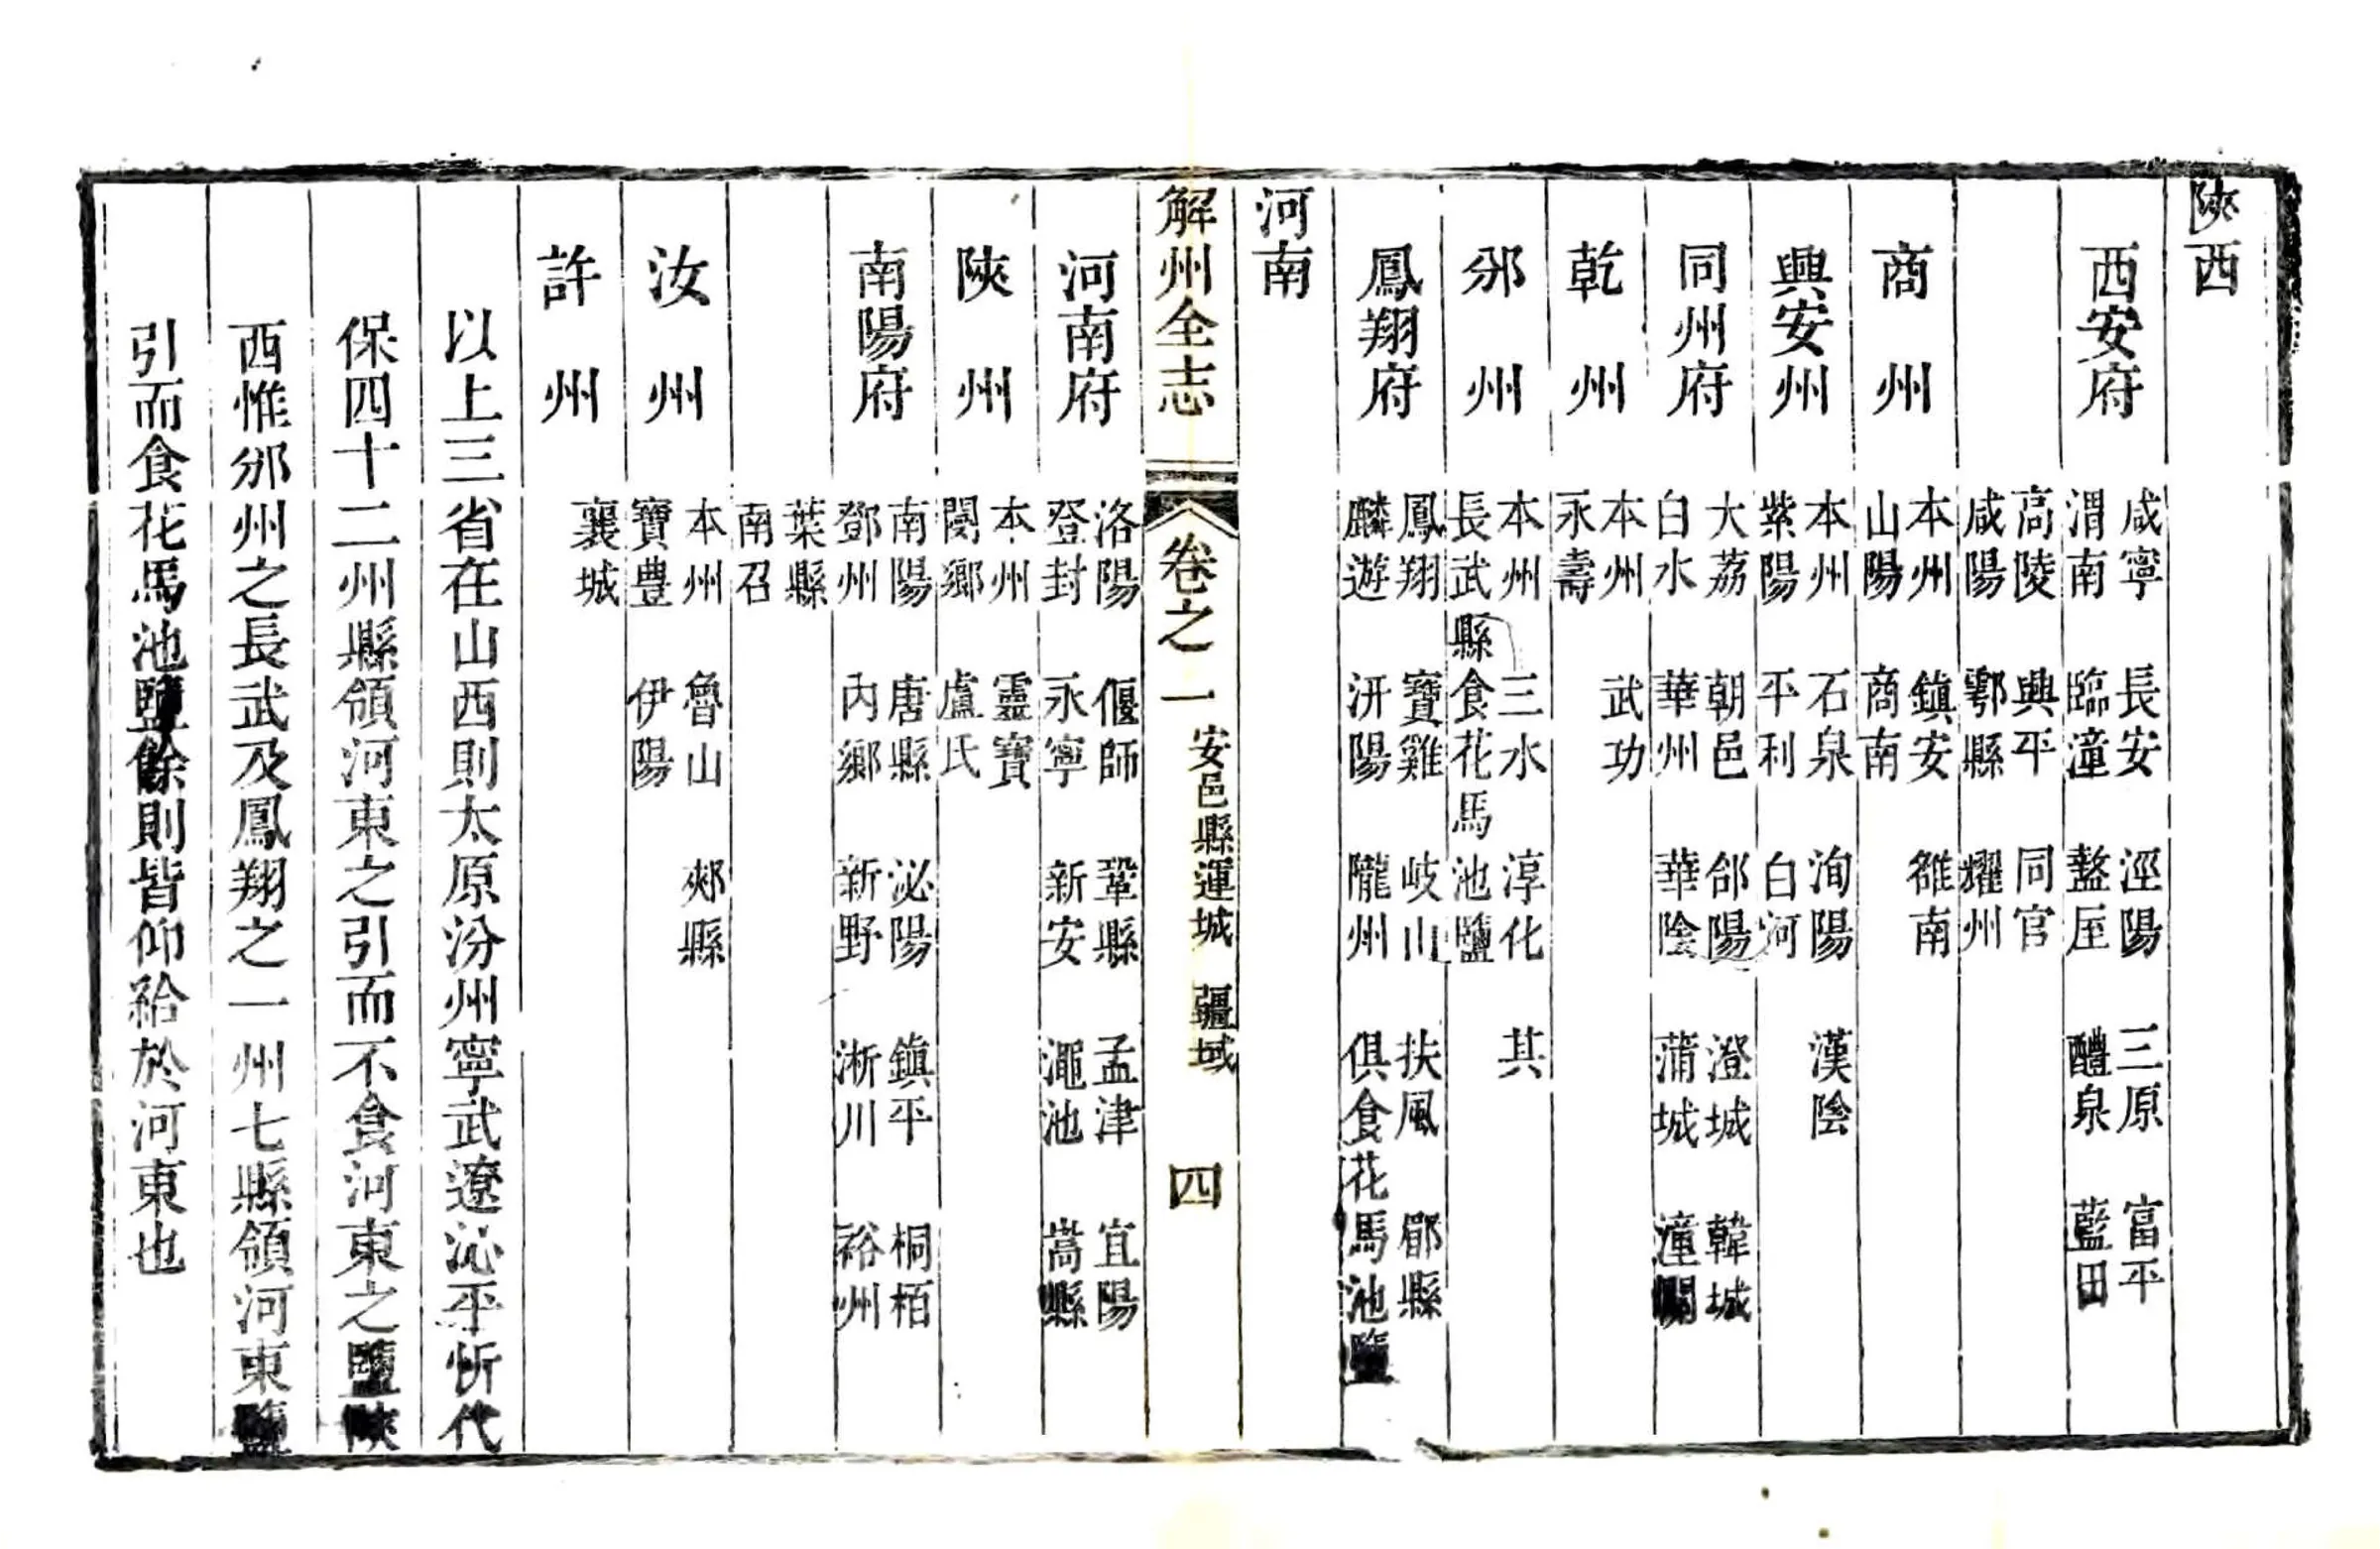 陝西
西安府
咸寧 長安 涇陽 三原 富平
渭南 臨潼 盩厔 醴泉 藍田
高陵 興平 同官
咸陽 鄠縣 耀州
商州
本州 鎮安 雒南
山陽 商南
興安州
本州 石泉 洵陽 漢陰
紫陽 平利 白河
同州府
大荔 朝邑 郃陽 澄城 韓城
白水 華州 華陰 蒲城 潼關
乾州
本州 武功
永壽
邠州
本州 三水 淳化 其
長武縣食花馬池鹽
鳳翔府
鳳翔 寶雞 岐山 扶風 郿縣
麟遊 汧陽 隴州 俱食花馬池鹽
河南
解州全志 卷之一 安邑縣運城 疆域 四
河南府
洛陽 偃師 鞏縣 孟津 宜陽
登封 永寧 新安 澠池 嵩縣
陝州
本州 靈寶
閿鄉 盧氏
南陽府
南陽 唐縣 泌陽 鎮平 桐栢
鄧州 內鄉 新野 淅川 裕州
葉縣
南召
汝州
本州 魯山 郟縣
寶豐 伊陽
許州
襄城
以上三省在山西則太原汾州寧武遼沁平忻代
保四十二州縣領河東之引而不食河東之鹽陝
西惟邠州之長武及鳳翔之一州七縣領河東鹽
引而食花馬池鹽餘則皆仰給於河東也